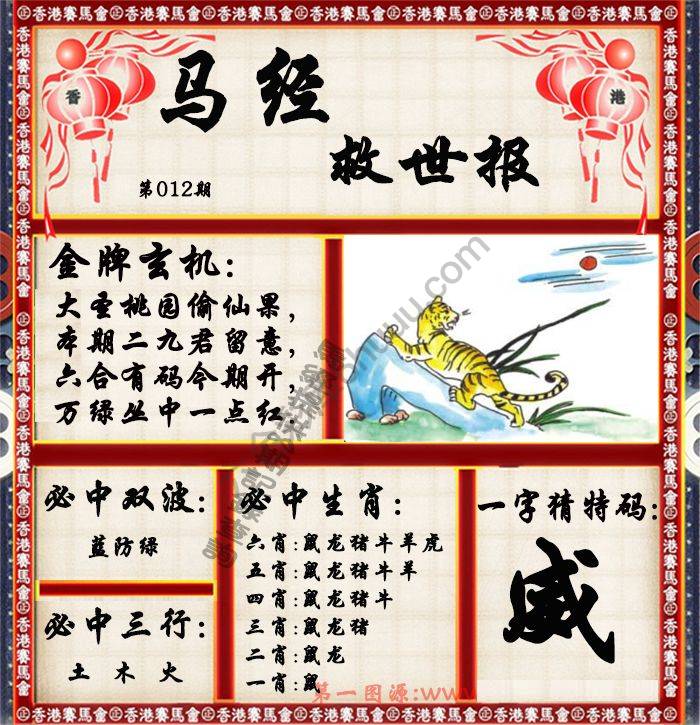 香港賽馬會
香
港
马经
救世报
第012期
金牌玄机:
大圣桃园偷仙果,
本期二九君留意,
六合有码今期开,
万绿丛中一点红.
必中双波:
蓝防绿
必中三行:
土 木 火
必中生肖:
六肖:鼠龙猪牛羊虎
五肖:鼠龙猪牛羊
四肖:鼠龙猪牛
三肖:鼠龙猪
二肖:鼠龙
一肖:鼠
一字猜特码:
威
第一图源:www